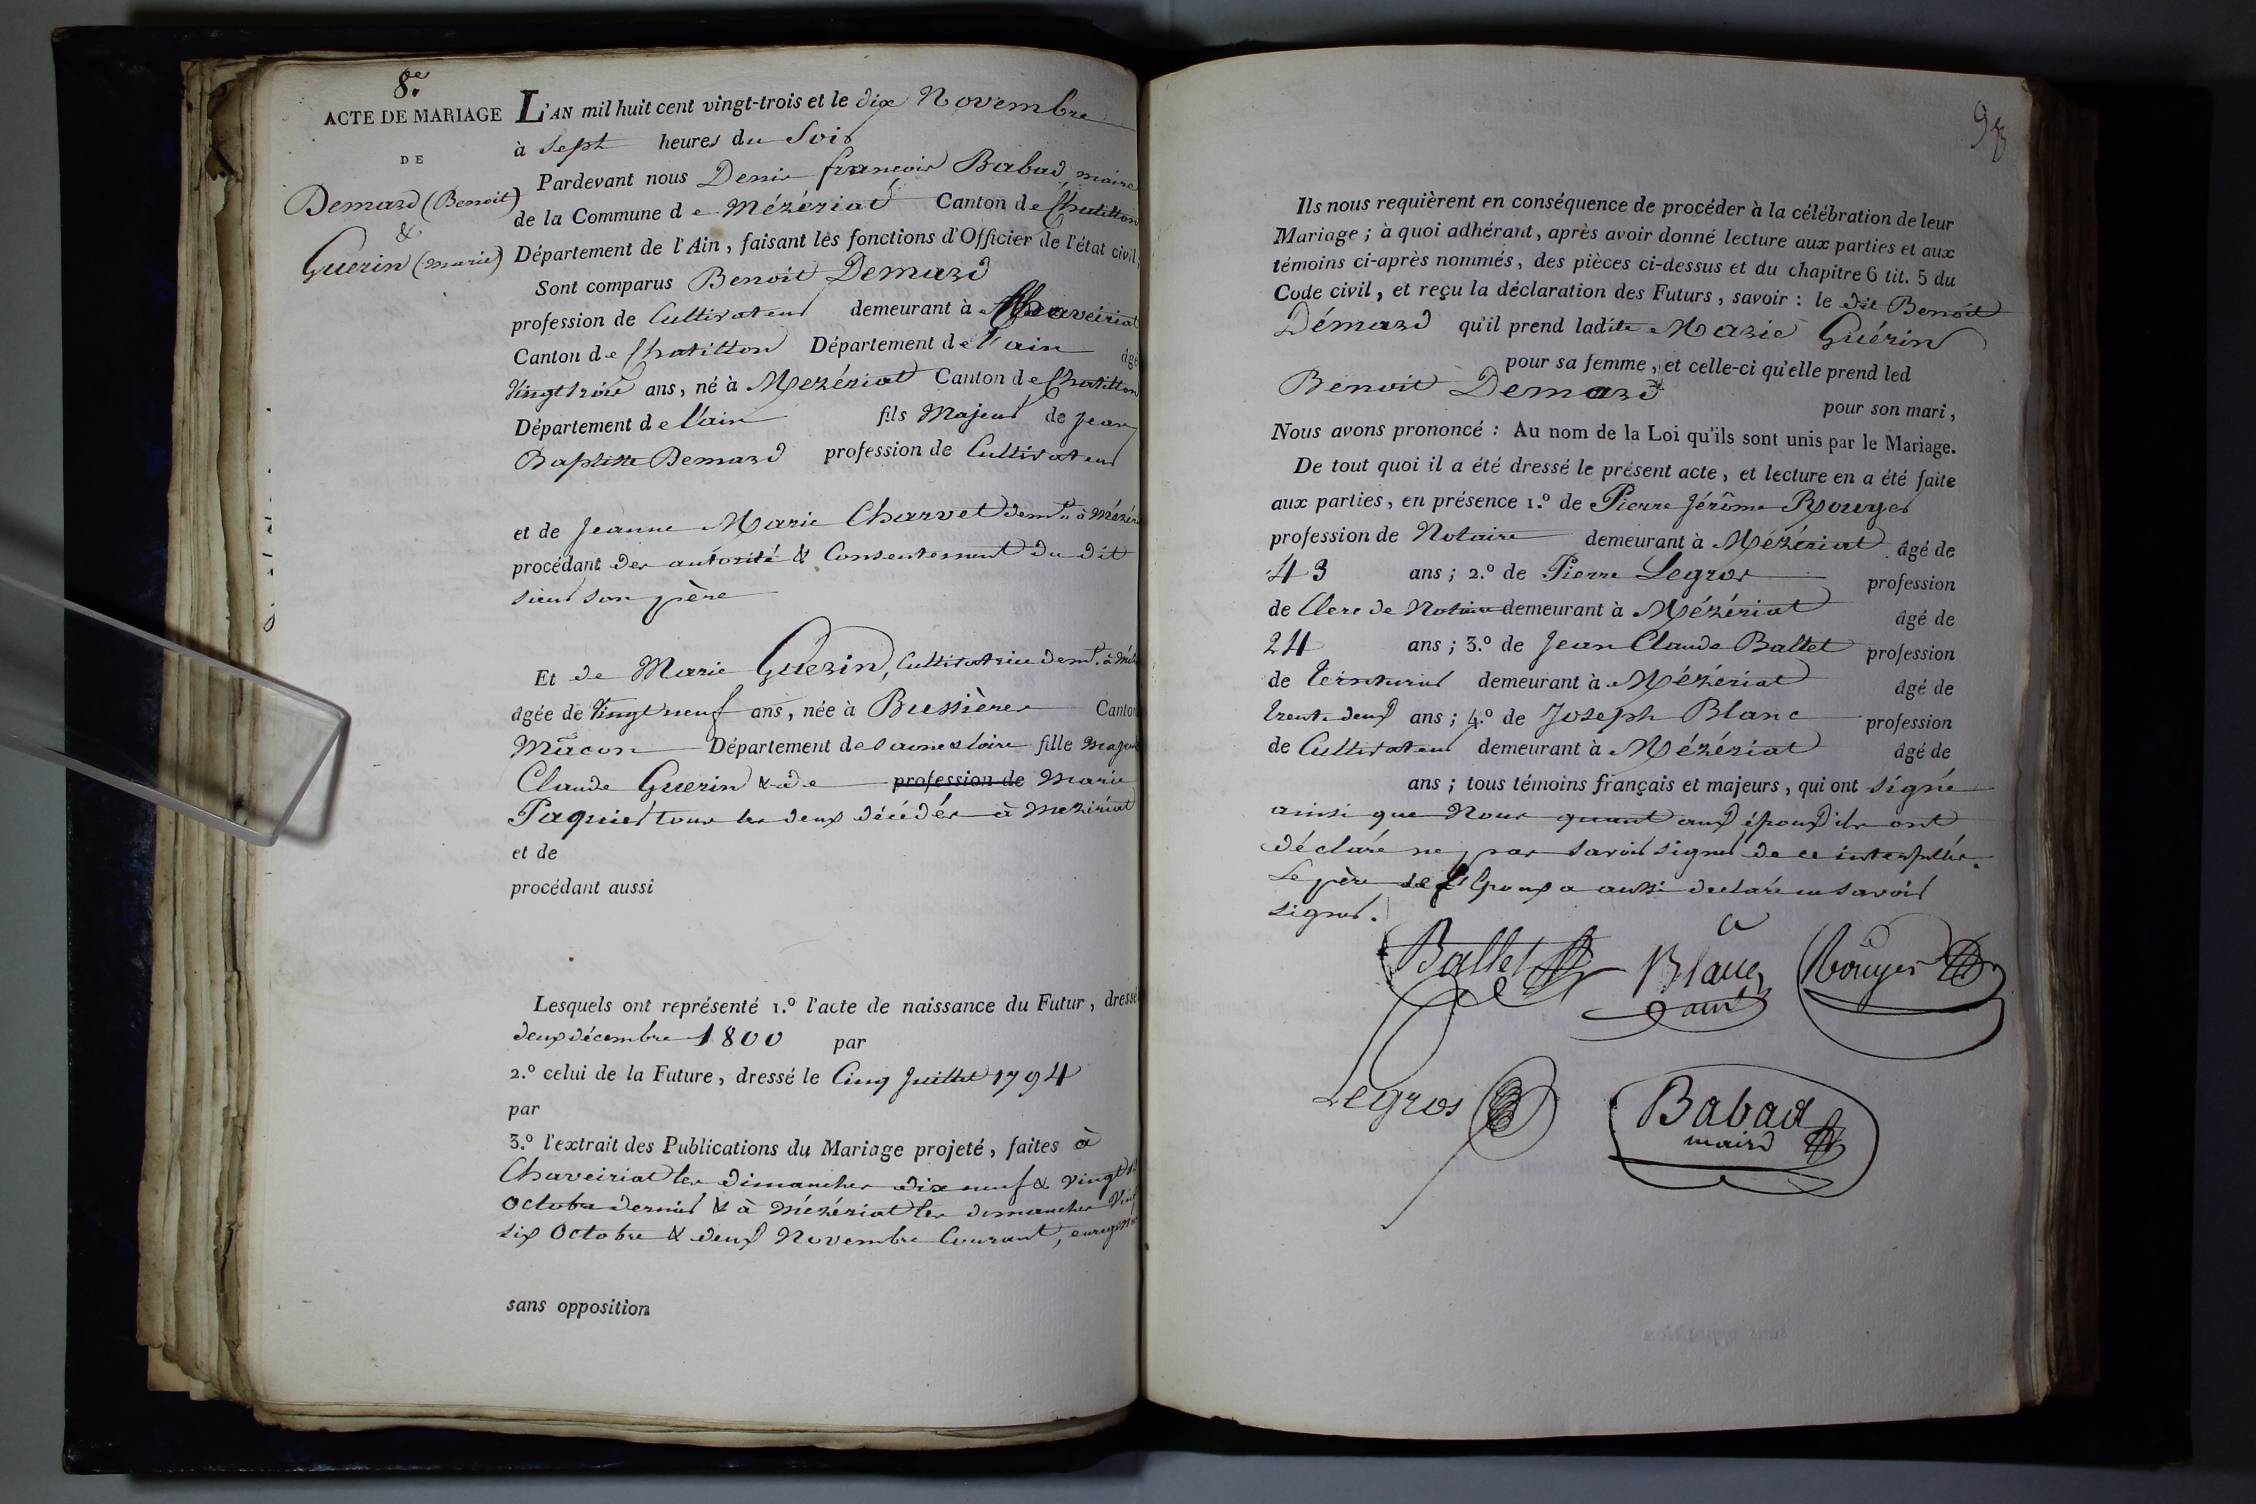 8.e
ACTE DE MARIAGE
DE
Demard (Benoit)
&
Guerin (Marie)
L'AN mil huit cent vingt-trois et le dix Novembre
à Sept heures du Soir
Pardevant nous Denis françois Babad, maire
de la Commune de Mézériat Canton de Chatillon
Département de l'Ain, faisant les fonctions d'Officier de l'état civil,
Sont comparus Benoit Demard
profession de Cultivateur demeurant à Chaveiriat
Canton de Chatillon Département de l'ain âgé
Vingt trois ans, né à Mezériat Canton de Chatillon
Département de l'ain fils Majeur de Jean
Baptiste Demard profession de Cultivateur
et de Jeanne Marie Charvet dem.t à Mézér
procédant des autorité & Consentement du dit
sieur son père
Et de Marie Guerin, Cultivatrice dem.t à Méz
âgée de Vingt neuf ans, née à Bussières Canton
Mâcon Département de saone et loire fille Majeur
Claude Guerin & de profession de Marie
Paquier tous les deux décédés à Mezériat
et de
procédant aussi
Lesquels ont représenté 1.º l'acte de naissance du Futur, dressé
deux décembre 1800 par
2.º celui de la Future, dressé le Cinq Juillet 1794
par
3.º l'extrait des Publications du Mariage projeté, faites à
Chaveiriat les dimanches dix neuf & Vingt
Octobre dernier & à Mézériat les dimanches Vingt
six Octobre & deux Novembre Courant,
sans opposition
Ils nous requièrent en conséquence de procéder à la célébration de leur
Mariage ; à quoi adhérant, après avoir donné lecture aux parties et aux
témoins ci-après nommés, des pièces ci-dessus et du chapitre 6 tit. 5 du
Code civil, et reçu la déclaration des Futurs, savoir : le dit Benoit
Démard qu'il prend ladite Marie Guérin
pour sa femme, et celle-ci qu'elle prend led
Benoit Demard
pour son mari,
Nous avons prononcé : Au nom de la Loi qu'ils sont unis par le Mariage.
De tout quoi il a été dressé le présent acte, et lecture en a été faite
aux parties, en présence 1.º de Pierre Jérôme Rouyer
profession de Notaire demeurant à Mézériat âgé de
43 ans ; 2.º de Pierre Legros profession
de Clerc de Notaire demeurant à Mézériat âgé de
24 ans ; 3.º de Jean Claude Ballet profession
de teinturier demeurant à Mézériat âgé de
trente deux ans ; 4.º de Joseph Blanc profession
de Cultivateur demeurant à Mézériat âgé de
ans ; tous témoins français et majeurs, qui ont signé
ainsi que Nous quant aux époux ils ont
déclaré ne pas savoir signer de ce interpellés.
Le père de l'Epoux a aussi declaré ne savoir
signer.
Ballet Blanc Rouyer
Legros Babad
maire